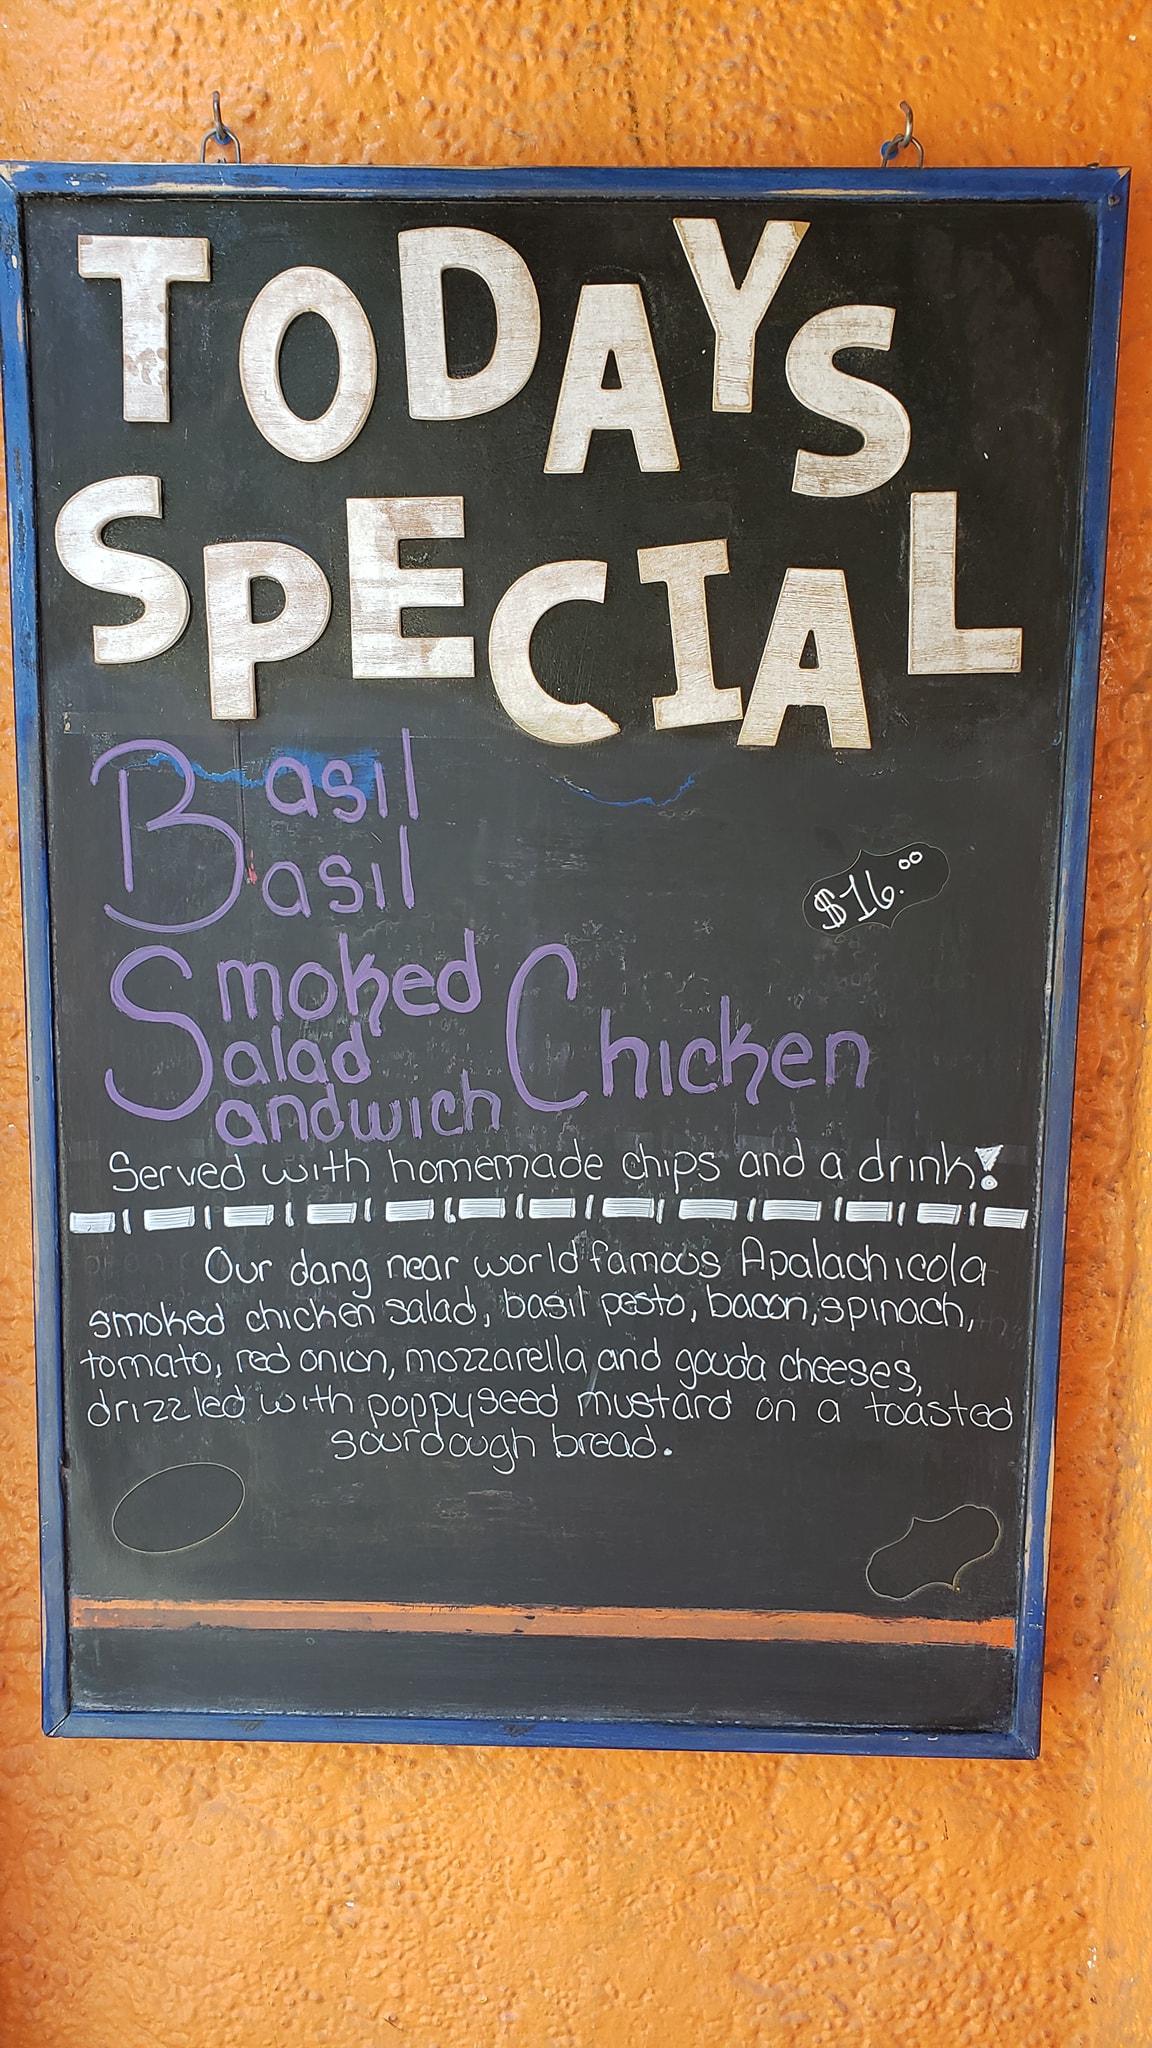 TODAYS
SPECIAL
Basil
Basil
$16.00
Smoked
Salad Chicken
Sandwich
Served with homemade chips and a drink!
Our dang near world famous Apalachicola
smoked chicken salad, basil pesto, bacon, spinach,
tomato, red onion, mozzarella and gouda cheeses,
drizzled with poppyseed mustard on a toasted
sourdough bread.